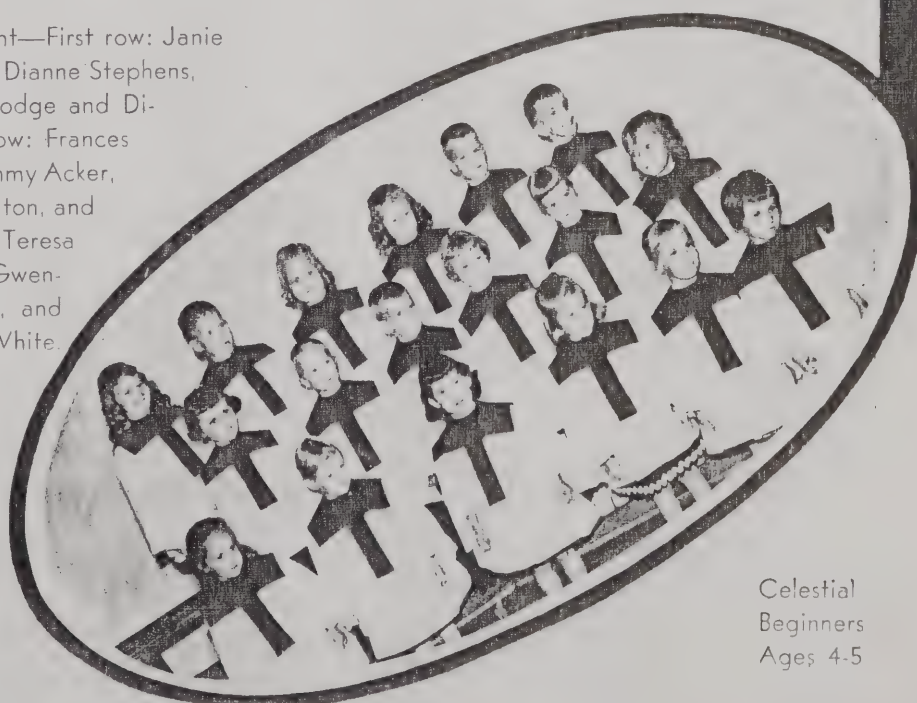 nt—First row: Janie
Dianne Stephens,
odge and Di-
ow: Frances
my Acker,
ton, and
Teresa
Gwen-
, and
White.
Celestial
Beginners
Ages 4-5